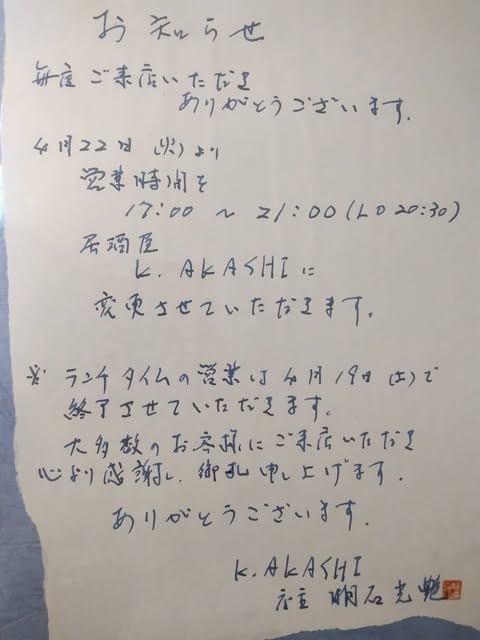 お知らせ
毎度ご来店いただき
ありがとうございます。
4月22日(火)より
営業時間を
17:00 ~ 21:00(LO 20:30)
居酒屋
K. AKASHIに
変更させていただきます。
※ ランチタイムの営業は4月19日(土)で
終了させていただきます。
大多数のお客様にご来店いただき
心より感謝し、御礼申し上げます。
ありがとうございます。
K. AKASHI
店主 明石光